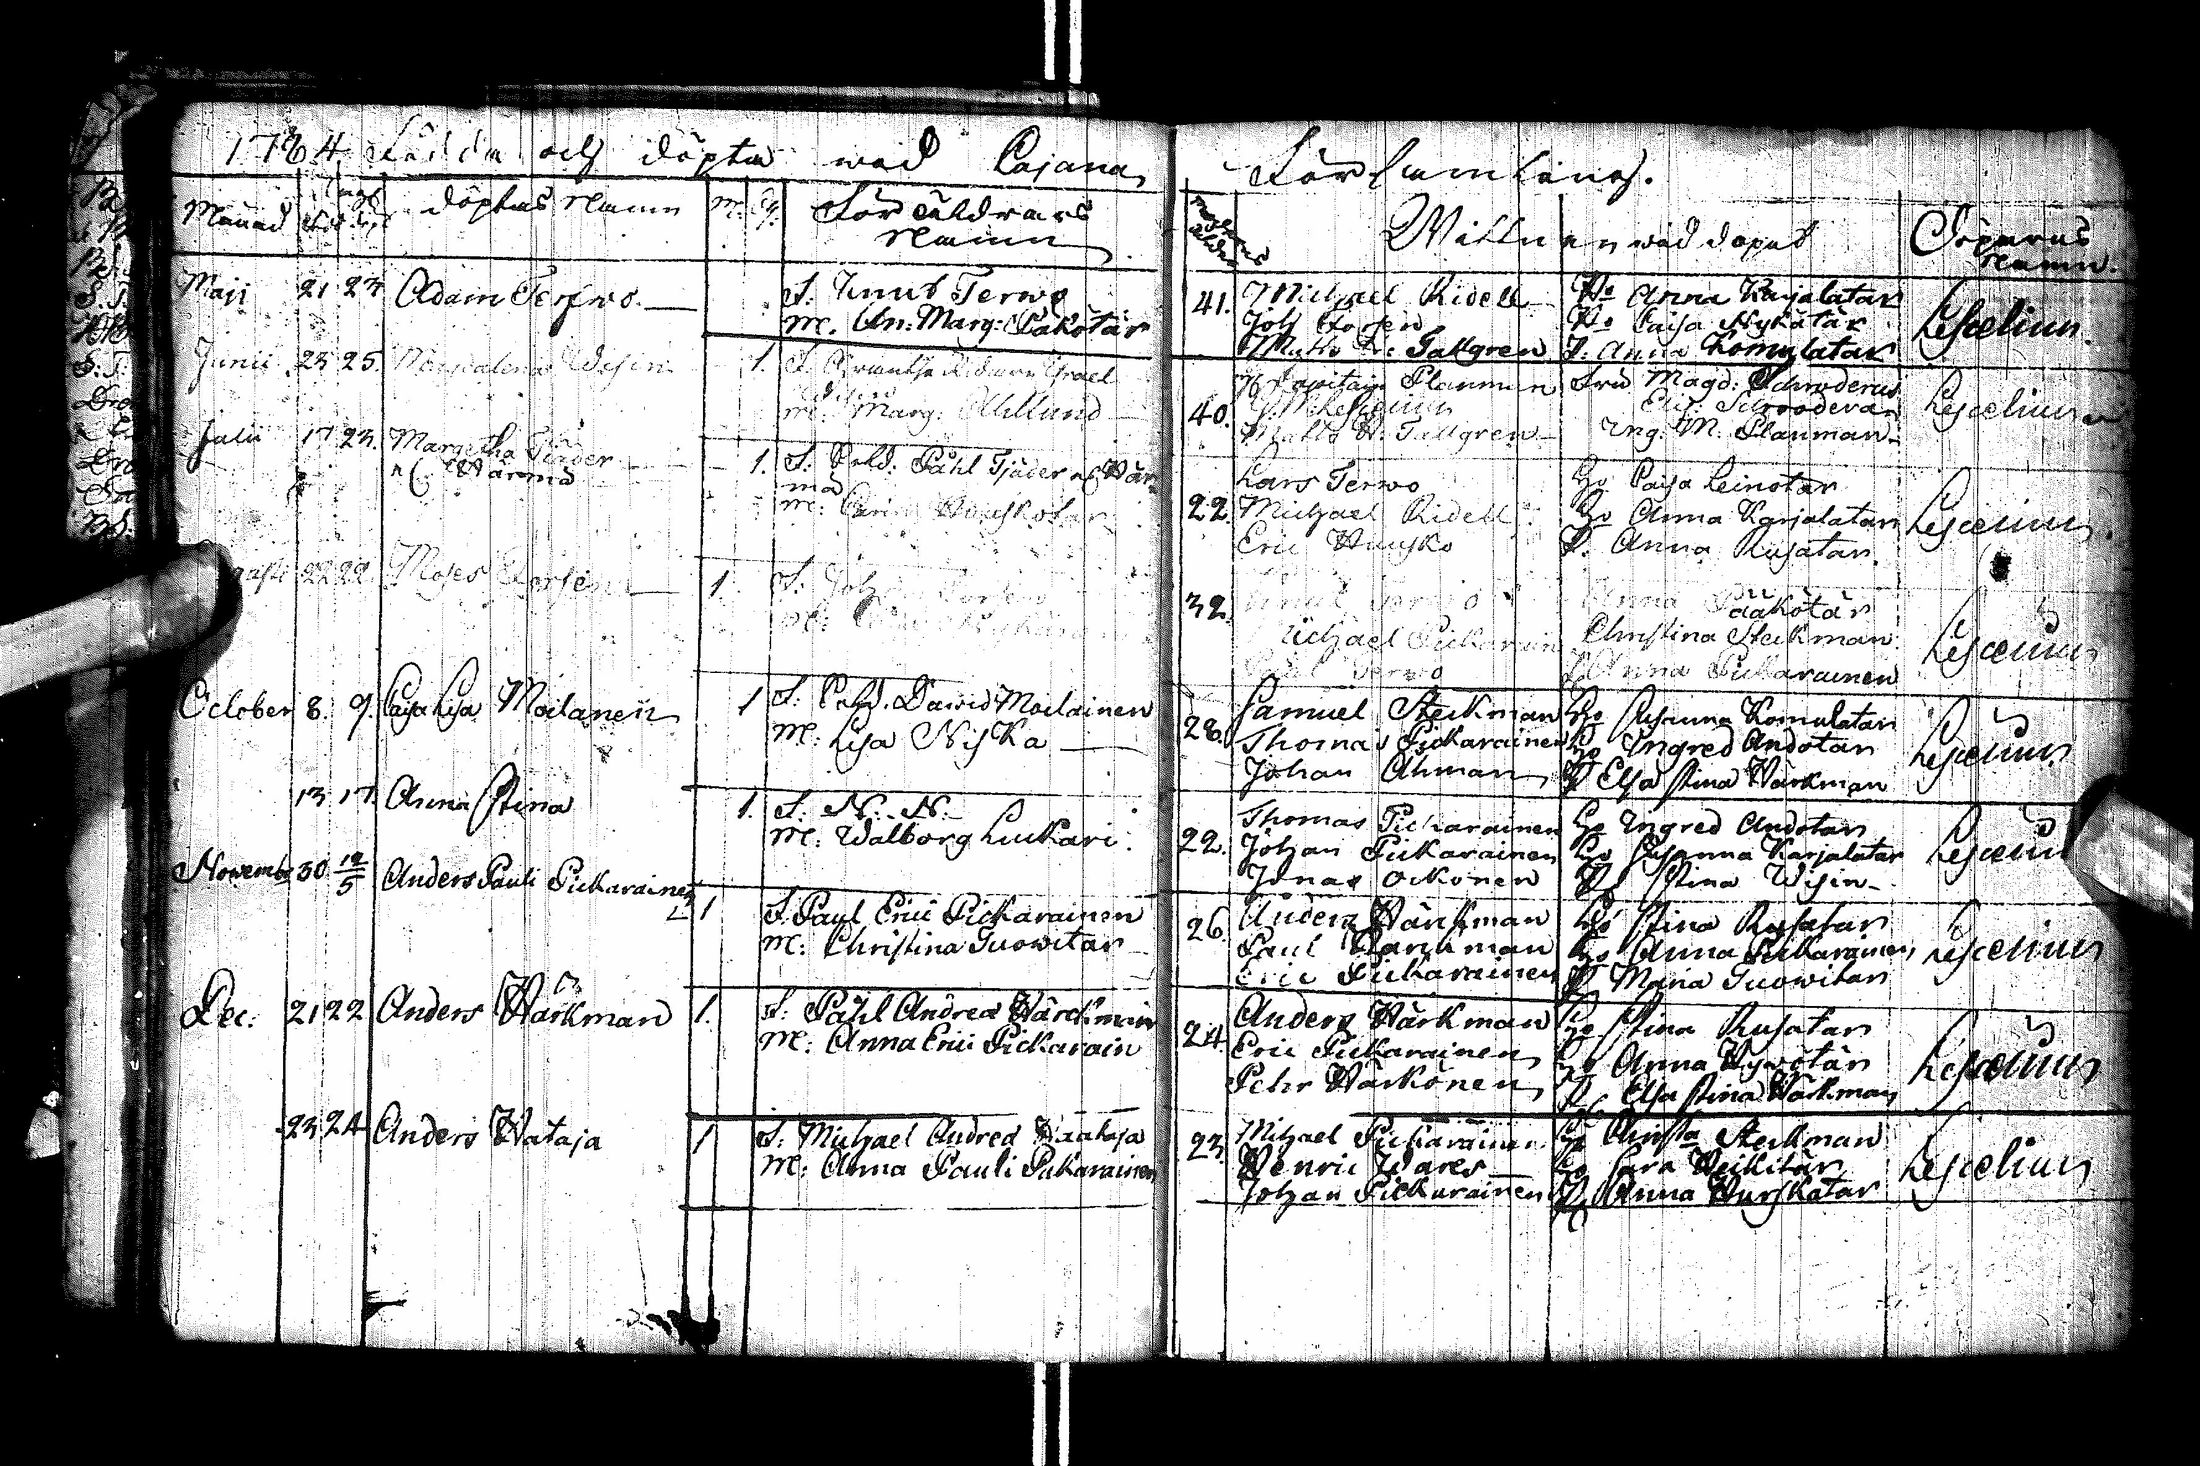 1784 Födda och döpta wed Cajana
Församling.
Månad
döptas Namn
M. Q.
Föräldrars
Namn
Modrens
ålder
Wittnen wid dopet
Döparens
Namn.
Maji 21 23 Adam Terfwo.
F: Knut Terwo
M. An: Marg: Pakotär
41. Michael Ridell
Joh Corsen
Matts H: Tallgren
Ho Anna Karjalatar
Ho Caisa Nykätär
P: Anna Komulatar
Lescelius.
Junii 23 25. Magdalena Wisin
1. F: Israel
Wisin
M: Marg: Ahllund
40. H Capitain Planman
Matts H: Tallgren
Fru Magd: Schroderus
Elis: Schroderus
Ung. M: Planman
Lescelius
Julii 17 23. Margetha Tjäder
Wärma
1. F: Sold: Påhl Tjäder Wär
ma
M: Carin Huuskotar
22. Lars Terwo
Michael Ridell
Eric Huusko
Ho Caisa Leinotar
Ho Anna Karjalatar
P. Anna Rusatar
Lescelius
22 22. Moses Corsen
1 F: Johan Corsen
32. Knut Terwo
Michael Pickarain
Terwo
Anna Pääkötär
Christina Steckman
Anna Pickarainen
Lescelius
October 8. 9. Caisa Lisa Moilanen
1 F: Sold. David Moilainen
M: Lisa Niska
28. Samuel Steckman
Thomas Pickarainen
Johan Ahman
Ho Susanna Komulatar
Ho Ingred Andotar
P Elsa Stina Härkman
Lescelius
13 17 Anna Stina
1. F: N. N.
M: Walborg Luckari
22. Thomas Pickarainen
Johan Pickarainen
Jonas Ockonen
Ho Ingred Andotar
Ho Susanna Karjalatar
P Stina Wisin
Lescelius
Novembr 30 12/5 Anders Pauli Pickarainen
1 F: Paul Erici Pickarainen
M: Christina Tuowitar
26. Anders Härkman
Paul Härkman
Eric Pickarainen
Ho Stina Rusatar
Ho Anna Pickarainen
P Maria Tuowitar
Lescelius
Dec: 21 22 Anders Härkman
1. F: Påhl Andreæ Härckman
M: Anna Erici Pickarain
24. Anders Härkman
Eric Pickarainen
Pehr Härkönen
Ho Stina Rusatar
Ho Anna Hywötär
P Elsa Stina Härkman
Lescelius
23 24 Anders Hataja
1 F: Michael Andreæ Haataja
M: Anna Pauli Pickarainen
23. Michael Pickarainen
Henric Wares
Johan Pickarainen
Ho Christa Steckman
Ho Sara Heikitär
P Anna Hurskatar
Lescelius